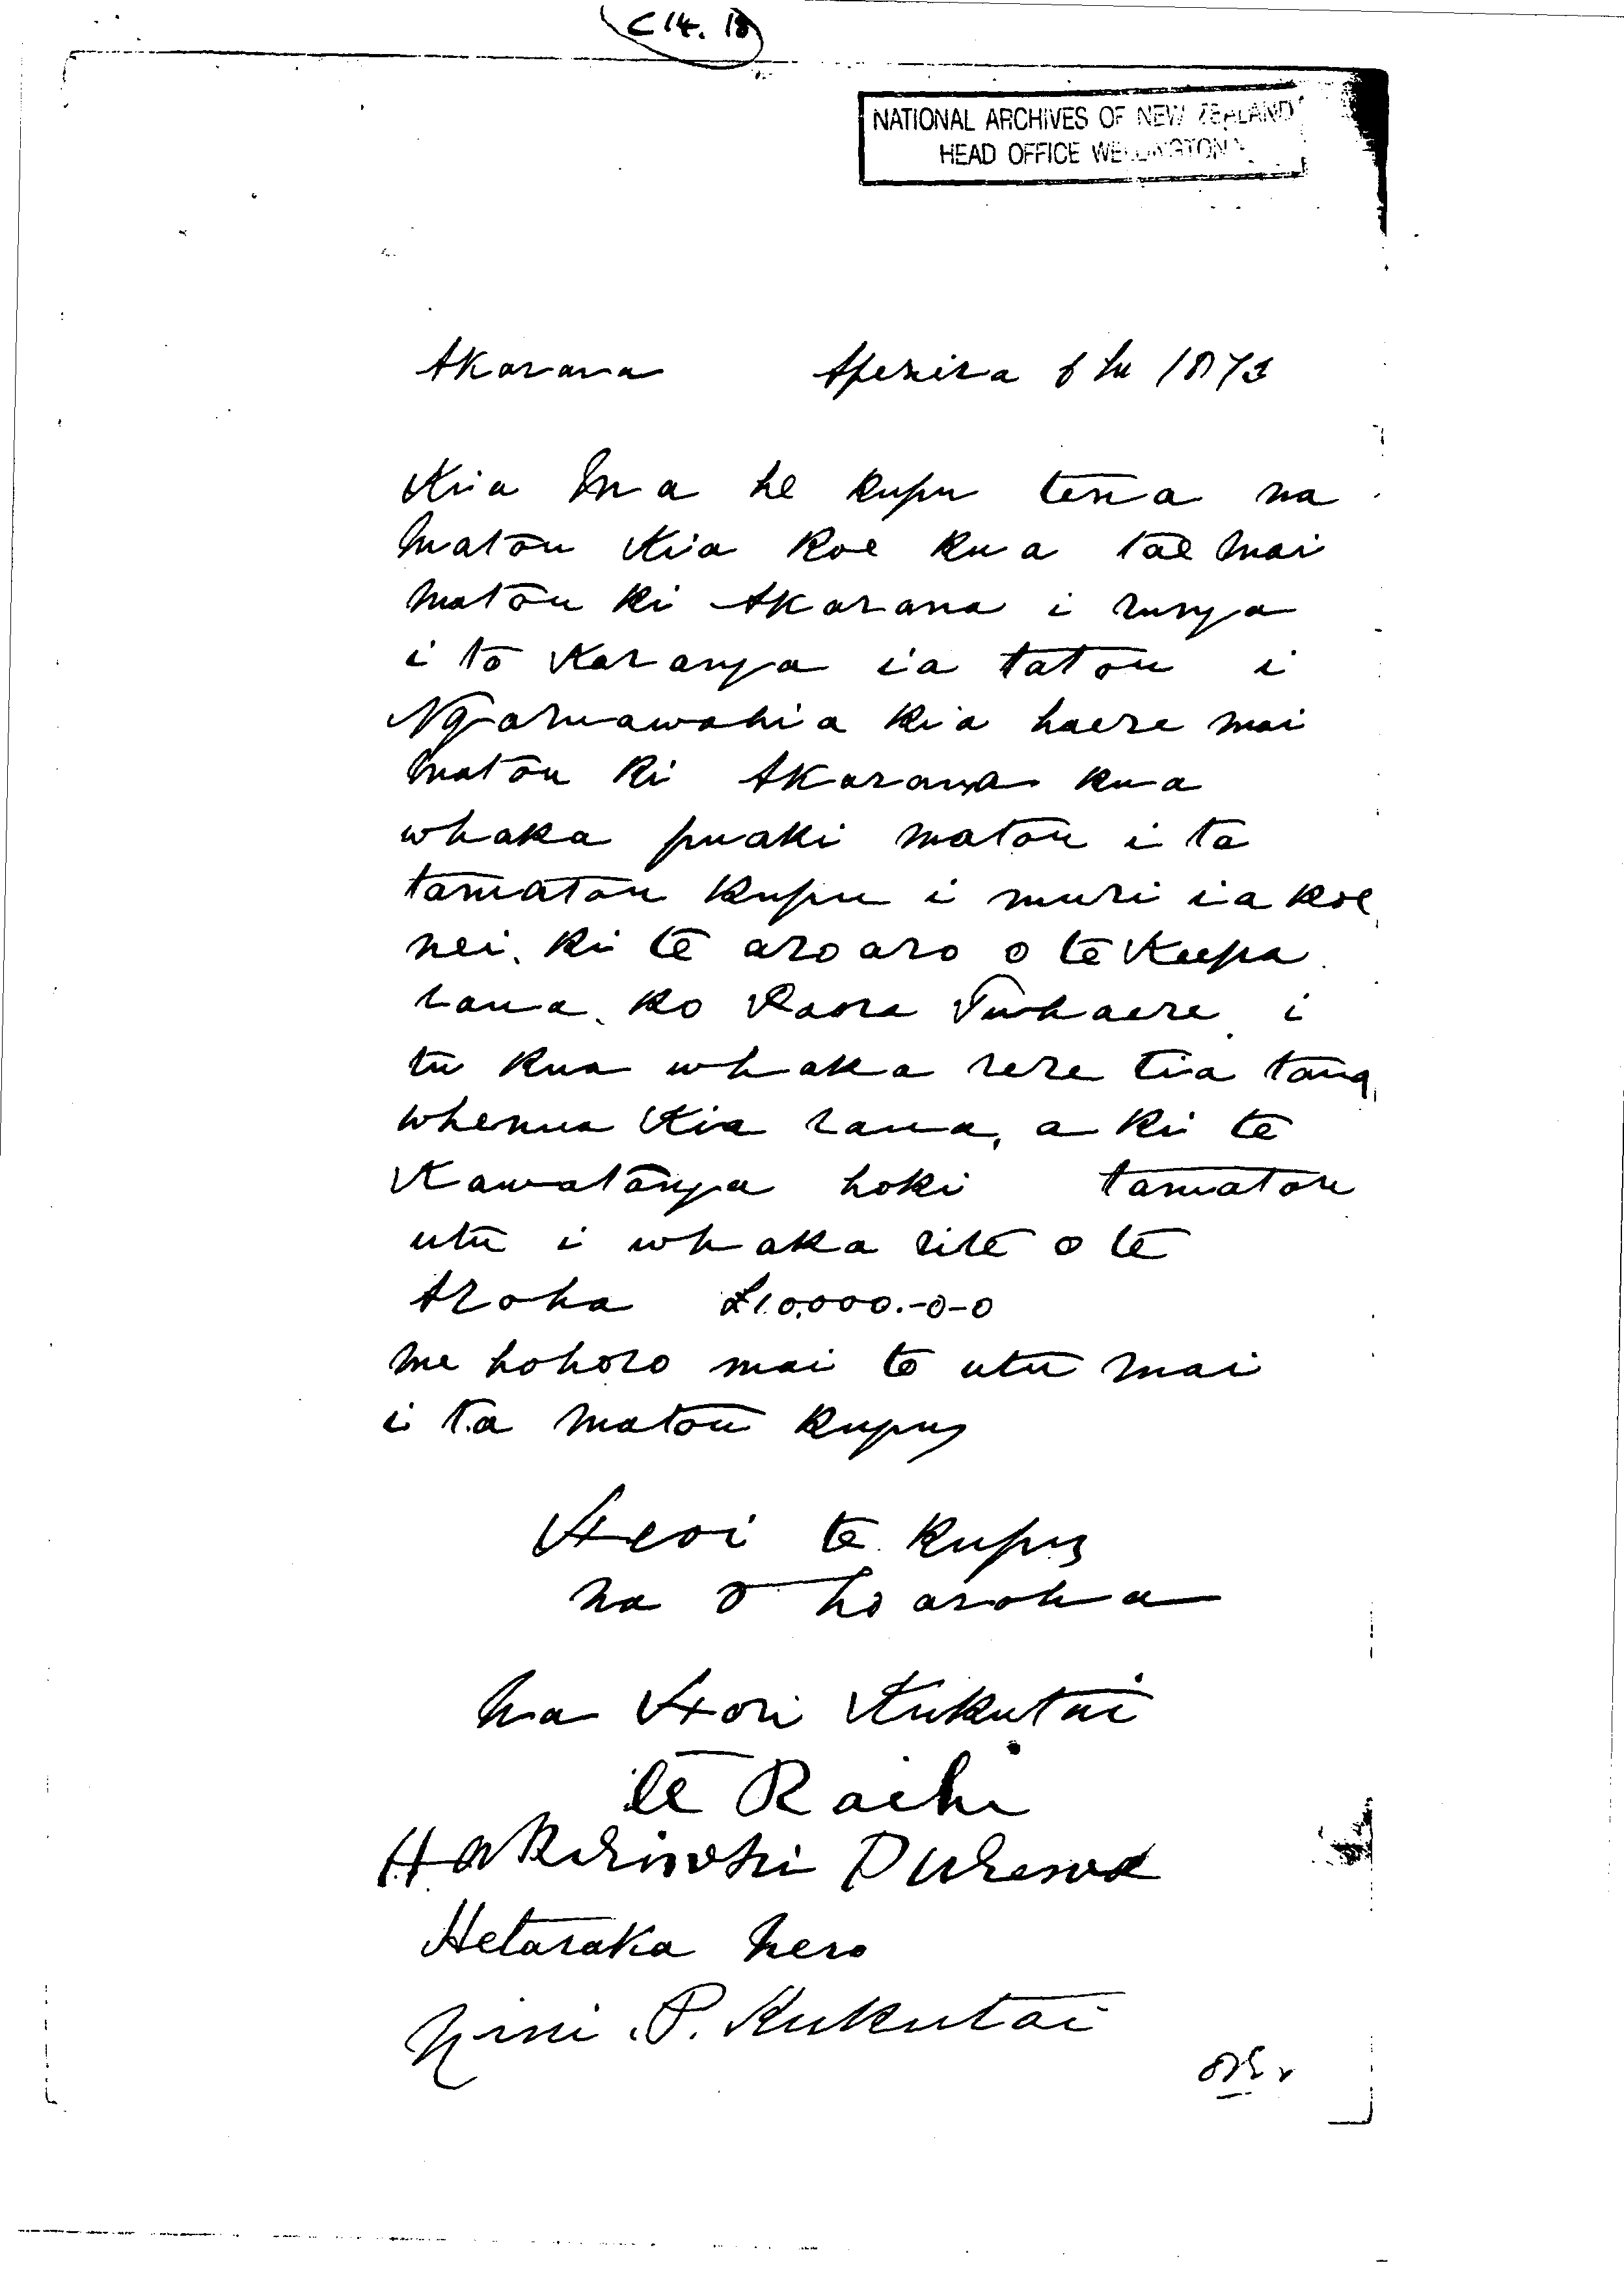 C 14. 18
NATIONAL ARCHIVES OF NEW ZEALAND
HEAD OFFICE WELLINGTON
Akarana Aperira 6th 1873
Kia Ma he kupu tena na
matou Kia koe kua tae mai
matou ki Akarana i runga
i to Karanga ia tatou i
Ngaruawahia kia haere mai
matou ki Akarana kua
whaka puaki matou i ta
tamatou kupu i muri ia koe
nei. ki te aroaro o te Keepa
raua. ko Paora Tuhaere i
tu kua whaka rere tia taua
whenua Kia raua, a ki te
Kawatanga hoki tamatou
utu i whaka rite o te
Aroha £10,000.-0-0
me hohoro mai te utu mai
i ta matou kupu
Heoi te kupu
na o hoaroha
Na Hori Kukutai
te Raihi
Hakiriwhi Purewa
Hetaraka Nero
Nini. P. Kukutai